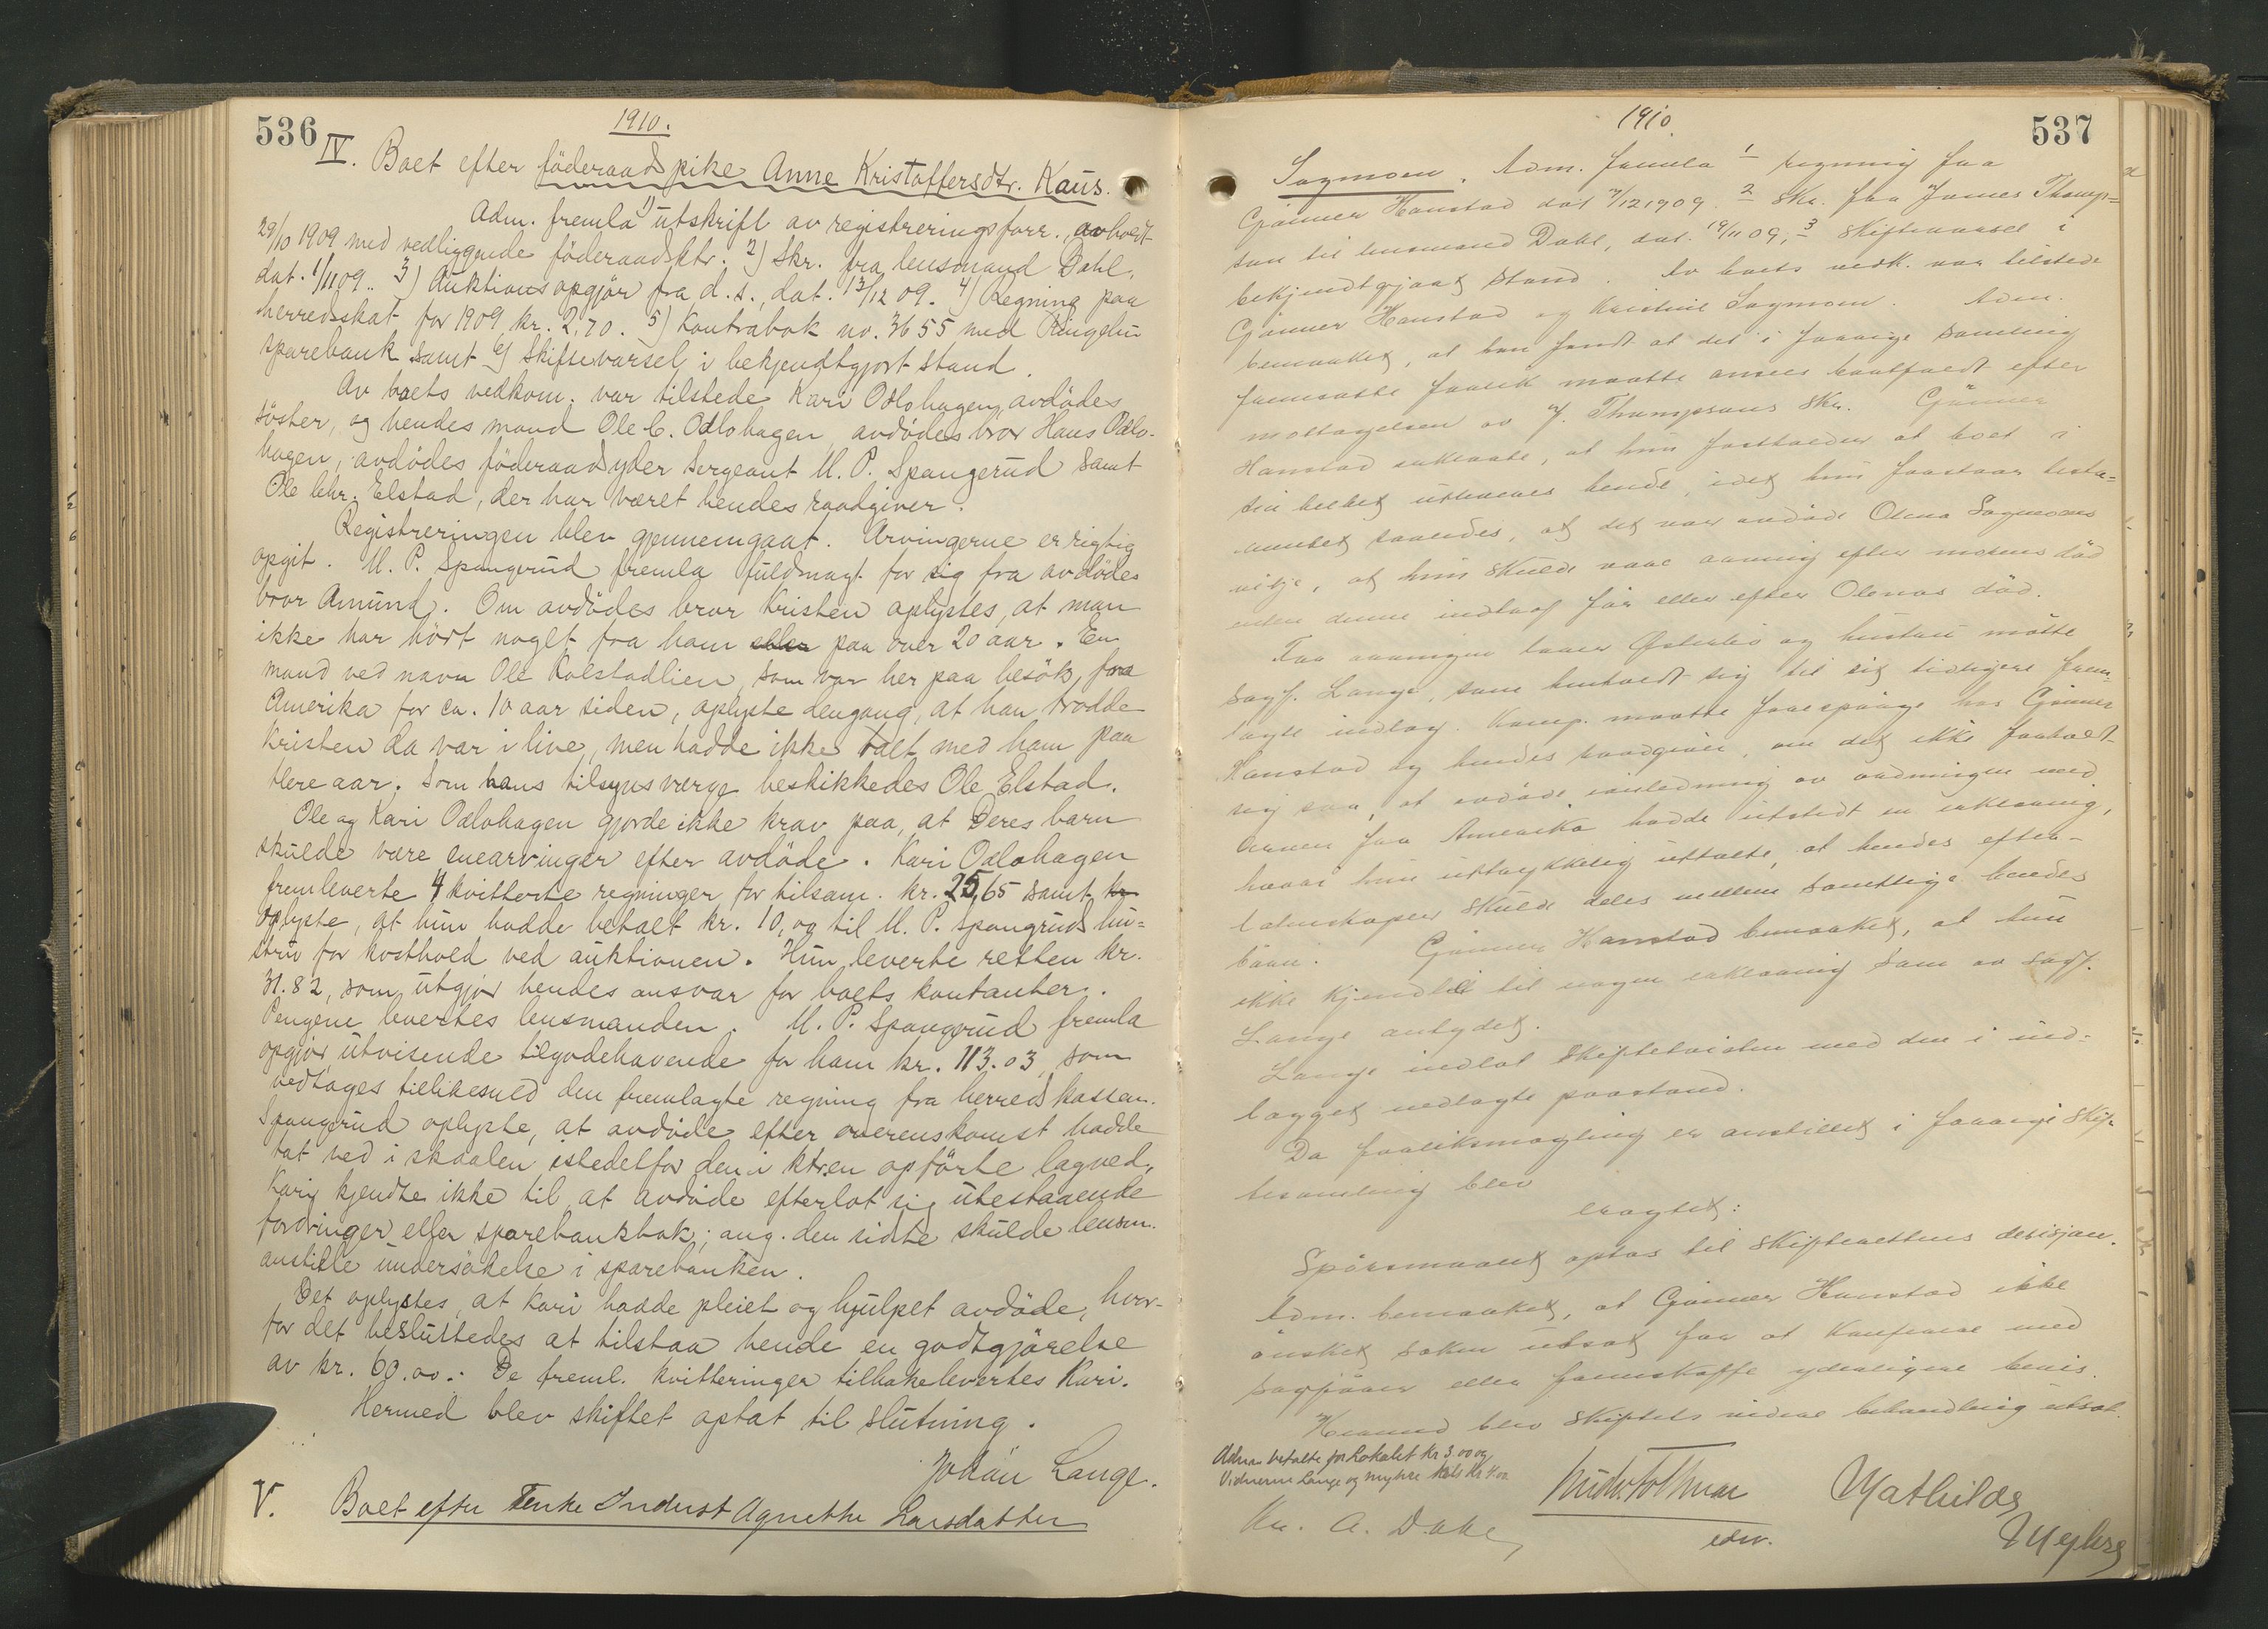 536
1910.
IV. Boet efter föderaadspike Anne Kristoffersdtr. Kaus.
Adm. fremla 1) utskrift av registreringsforr., avholdt
29/10 1909 med vedliggende föderaadsktr. 2) Skr. fra lensmand Dahl,
dat. 1/11 09.. 3) Auktionsopgjör fra d. s., dat. 13/12 09. 4) Regning paa
herredsskat for 1909 kr. 2,70. 5) Kontrabok no. 3655 med Ringebu
sparebank samt 6) Skiftevarsel i bekjendtgjort stand.
Av boets vedkom. var tilstede Kari Odlohagen, avdödes
söster, og hendes mand Ole C. Odlohagen, avdödes bror Hans Odlo-
hagen, avdödes föderaadsyder sergeant M. P. Spangerud samt
Ole Chr. Elstad, der har været hendes raadgiver.
Registreringen blev gjennemgaat. Arvingerne er rigtig
opgit. M. P. Spangerud fremla fuldmagt for sig fra avdödes
bror Amund. Om avdödes bror Kristen oplystes, at man
ikke har hört noget fra ham eller paa over 20 aar. En
mand ved navn Ole Kolstadlien, som var her paa besök fra
Amerika for ca. 10 aar siden, oplyste dengang, at han trodde
Kristen da var i live, men hadde ikke talt med ham paa
flere aar. Som hans tilsynsværge beskikkedes Ole Elstad.
Ole og Kari Odlohagen gjorde ikke krav paa, at Deres barn
skulde være enearvinger efter avdöde. Kari Odlohagen
fremleverte 4 kvitterte regninger for tilsam. kr. 25,65 samt kr
oplyste, at hun hadde betalt kr. 10,00 til M. P. Spangruds hu-
stru for kosthold ved auktionen. Hun leverte retten kr.
31.82, som utgjör hendes ansvar for boets kontanter.
Pengene levertes lensmanden. M. P. Spangerud fremla
opgjör, utvisende tilgodehavende for ham kr. 113.03, som
vedtages tillikemed den fremlagte regning fra herredskassen.
Spangerud oplyste, at avdöde efter overenskomst hadde
tat ved i skaalen istedetfor den i ktren opförte lagved.
Kari kjendte ikke til, at avdöde efterlot sig utestaaende
fordringer eller sparebankbok; ang. den sidste skulde lensm.
anstille undersökelse i sparebanken.
Det oplystes, at Kari hadde pleiet og hjulpet avdöde, hvor-
for det besluttedes at tilstaa hende en godtgjörelse
av kr. 60.00. De freml. kvitteringer tilbakelevertes Kari.
Hermed blev skiftet optat til slutning.
Johan Lange.
V. Boet efter Enke Agnethe Larsdatter
1910.
537
Sagmoen. Adm. fremla 1 regning fra
Gunner Hanstad dat 7/12 1909. 2 Skr. fra James Thomp-
son til lensmand Dahl, dat. 19/11 09, 3 Skiftevarsel i
bekjendtgjort stand. Av boets vedk. var tilstede
Gunner Hanstad og Kristine Sagmoen. Adm.
bemerket, at han fandt at det i forrige samling
fremsatte forlik maatte ansees bortfaldt efter
mottagelsen av J. Thompsons skr. Gunner
Hanstad erklærte, at hun fastholder at boet i
sin helhet utleveres hende, idet hun forstaar testa-
mentet saaledes, at det var avdöde Olena Sagmoens
vilje, at hun skulde være arving efter moren död
enten denne indtraf för eller efter Olenas död.
For arvingen Lars Österbö og hustru mötte
sagf. Lange, som henholdt sig til sit tidligere frem-
lagte indlæg. Komp. maatte forespörge hos Gunner
Hanstad og hendes raadgiver, om det ikke forholdt
sig saa, at avdöde i anledning av ordningen med
arven fra Amerika hadde utstedt en erklæring,
hvori hun uttrykkelig uttalte, at hendes efter-
latenskaper skulde deles mellem samtlige hendes
barn. Gunner Hanstad bemerket, at hun
ikke kjendte til nogen erklæring som av sagf.
Lange antydet.
Lange indlot skiftetvisten med den i ind-
lægget nedlagte paastand.
Da forliksmægling er anstillet i forrige skif-
tesamling blev
eragtet:
Spörsmaalet optas til skifterettens decisjon.
Adm. bemerket, at Gunner Hanstad ikke
önsket saken utsat for at konferere med
sagförer eller fremskaffe yderligere bevis.
Hermed blev skiftets videre behandling utsat.
Adm. betalte for Lokalet Kr 3.00 og
Vidnerne Lange og Myhre Kr 4.00
Kr. A. Dahl
edsv.
Mathilde
Myhre